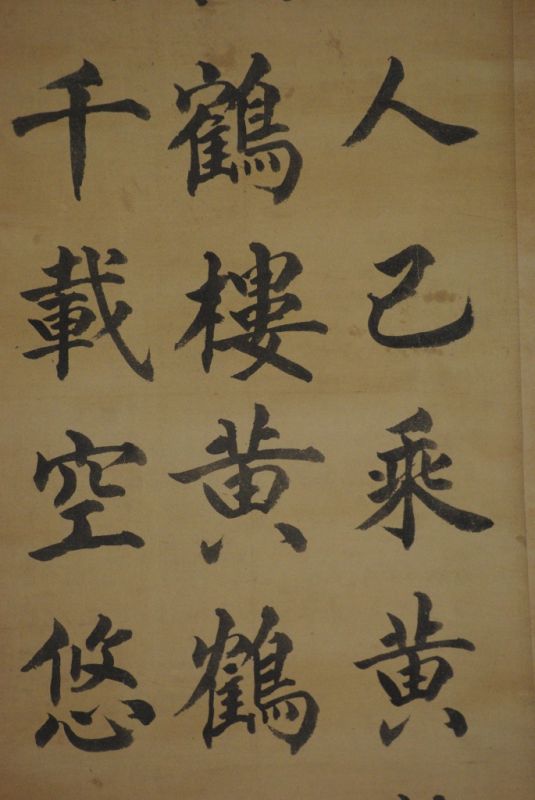 人已乘黄
鶴樓黄鶴
千載空悠